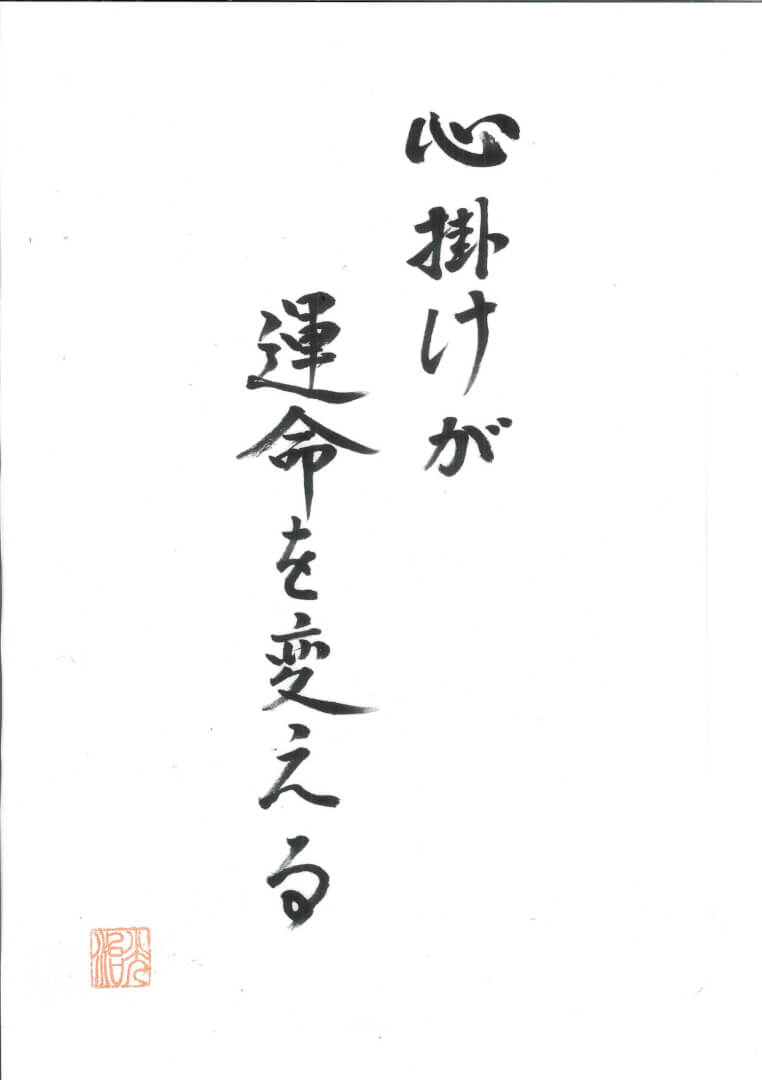 心掛けが
運命を変える